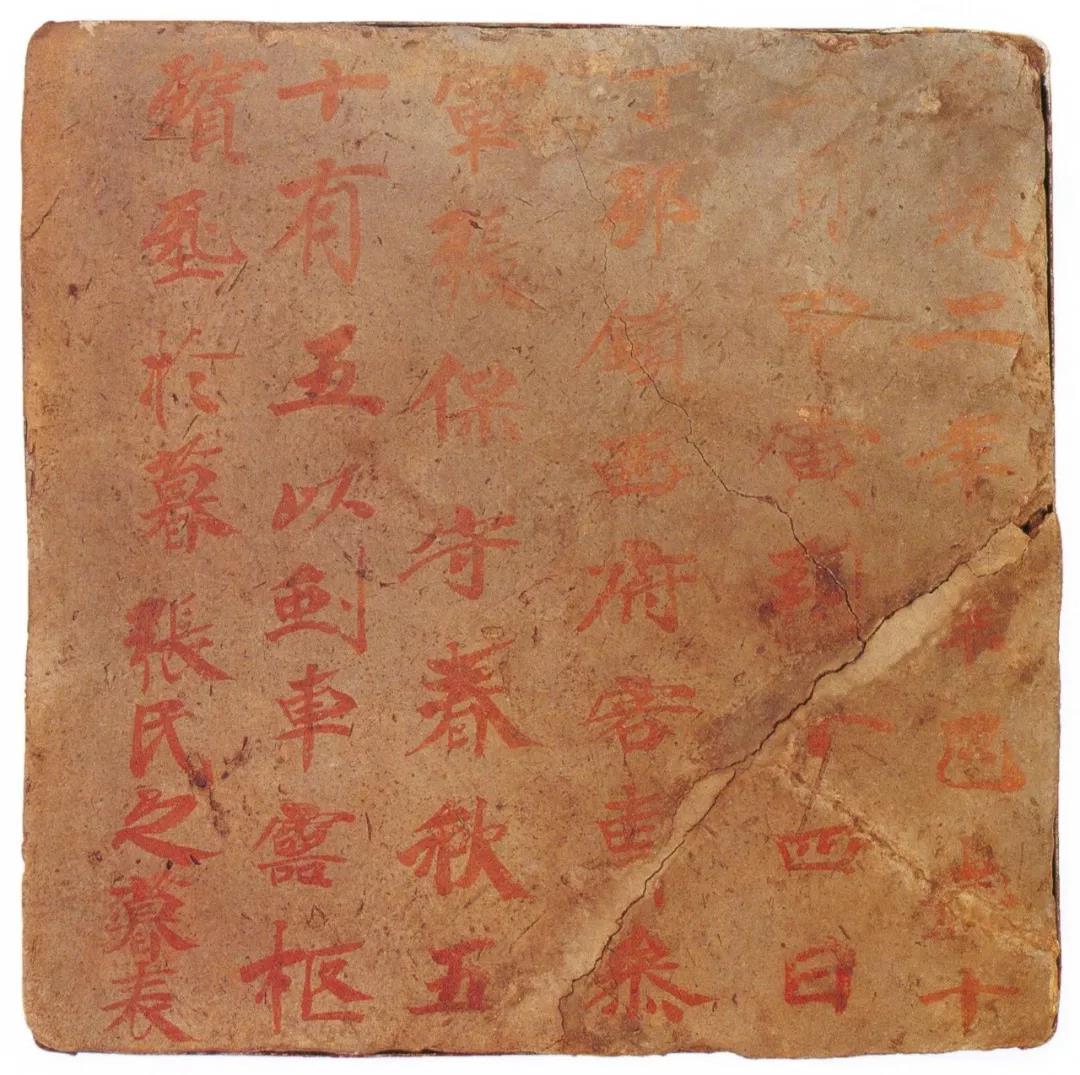 元二年歲十
一月甲寅朔十四日
丁卯鎮西府客曹參
軍張保守春秋五
十有五以車靈柩
殯葬於墓張氏之墓表